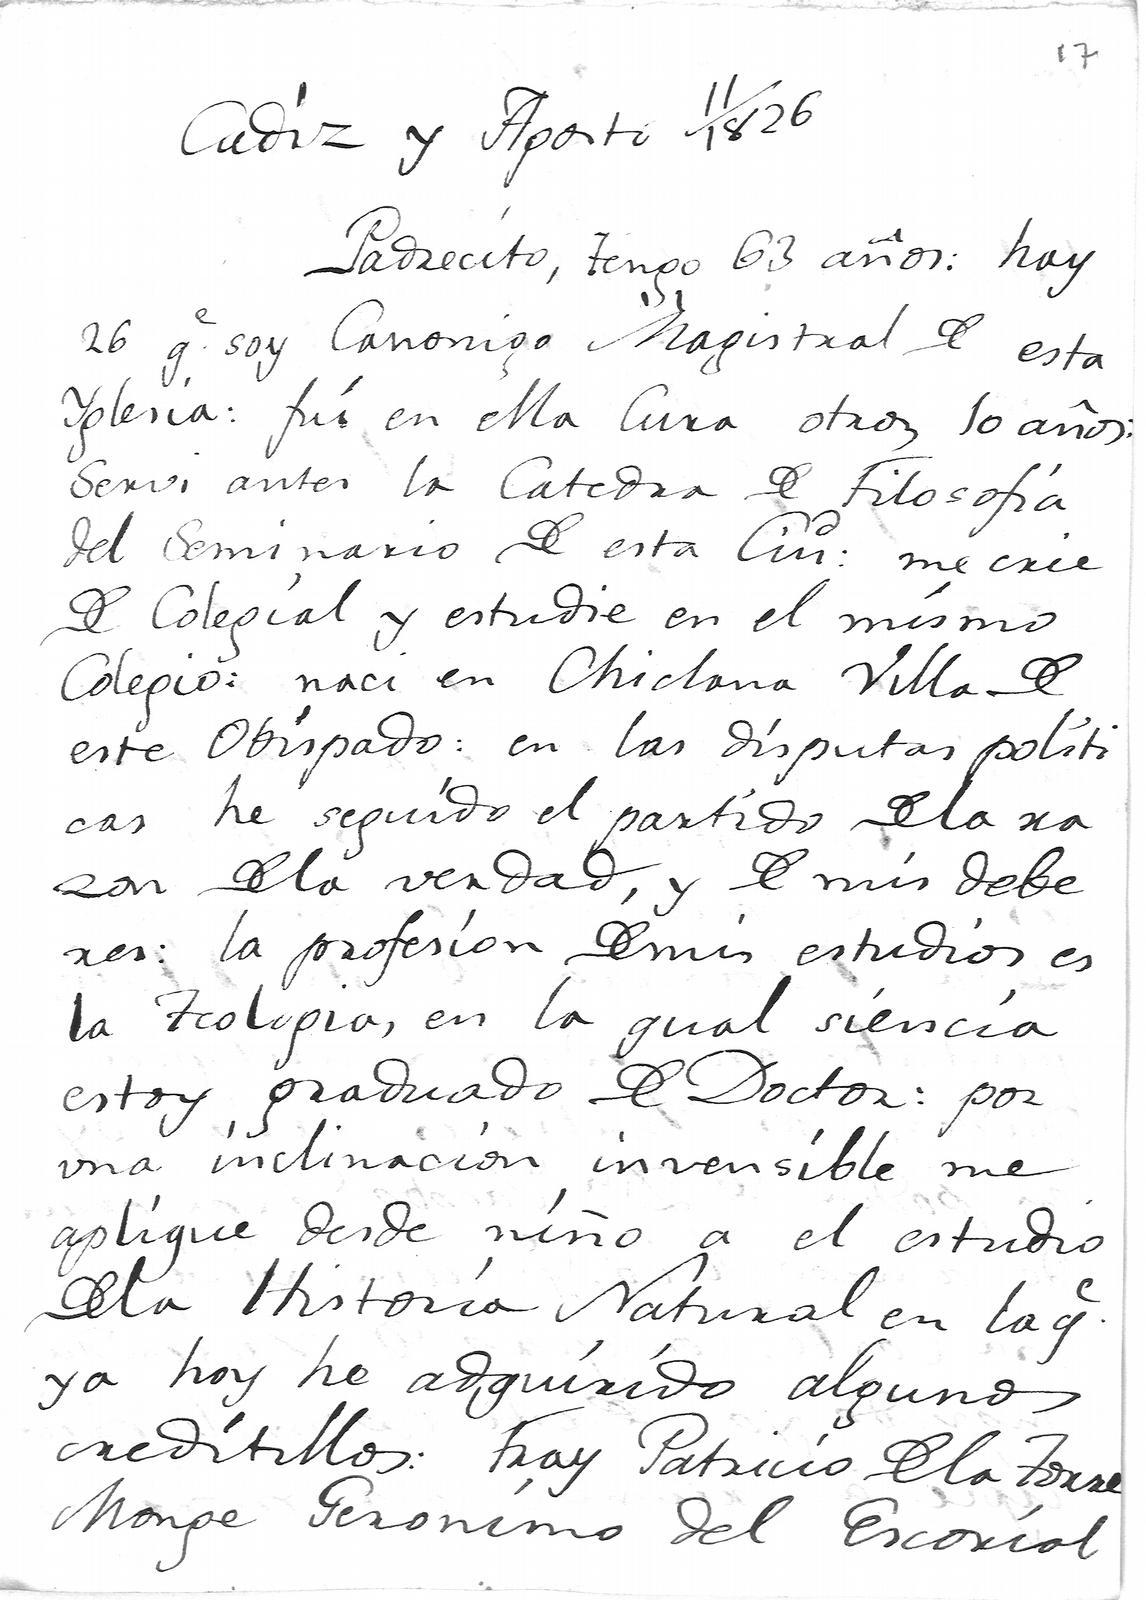 17
Cadiz y Agosto 11/1826
Padrecito, tengo 63 años: hay
26 q.e soy Canonigo Magistral de esta
Yglesia: fui en ella Cura otros 10 años:
Servi antes la Catedra de Filosofía
del Seminario de esta Ciud: me crie
de Colegial y estudie en el mismo
Colegio: naci en Chiclana Villa de
este Obispado: en las disputas politi
cas he seguido el partido dela ra
zon dela verdad, y de mis debe
res: la profesion demis estudios es
la Teologia, en la qual siencia
estoy graduado de Doctor: por
una inclinacion invensible me
aplique desde niño a el estudio
dela Historia Natural en la q.e
ya hoy he adquirido algunos
creditillos: Fray Patricio dela Torre
Monge Geronimo del Escorial